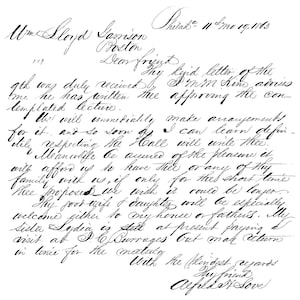 Philada 11th mo 19, 1863
Wm Lloyd Garrison
Boston
Dear friend
Thy kind letter of the
9th was duly received. J. M. McKim advises
me he has written thee approving the con-
templated lecture.
We will immediately make arrangements
for it and so soon as I can learn defin-
itely respecting the Hall will write thee.
Meanwhile be assured of the pleasure it
will afford us to have thee or any of thy
family with us, if only for the short time
thee proposed. We wish it could be longer.
Thy good wife & daughter will be especially
welcome either to my house or father's. My
sister Lydia is at present paying a
visit at but may return
in time for the meeting
With the kindest regards
Thy friend
Alfred H. Love